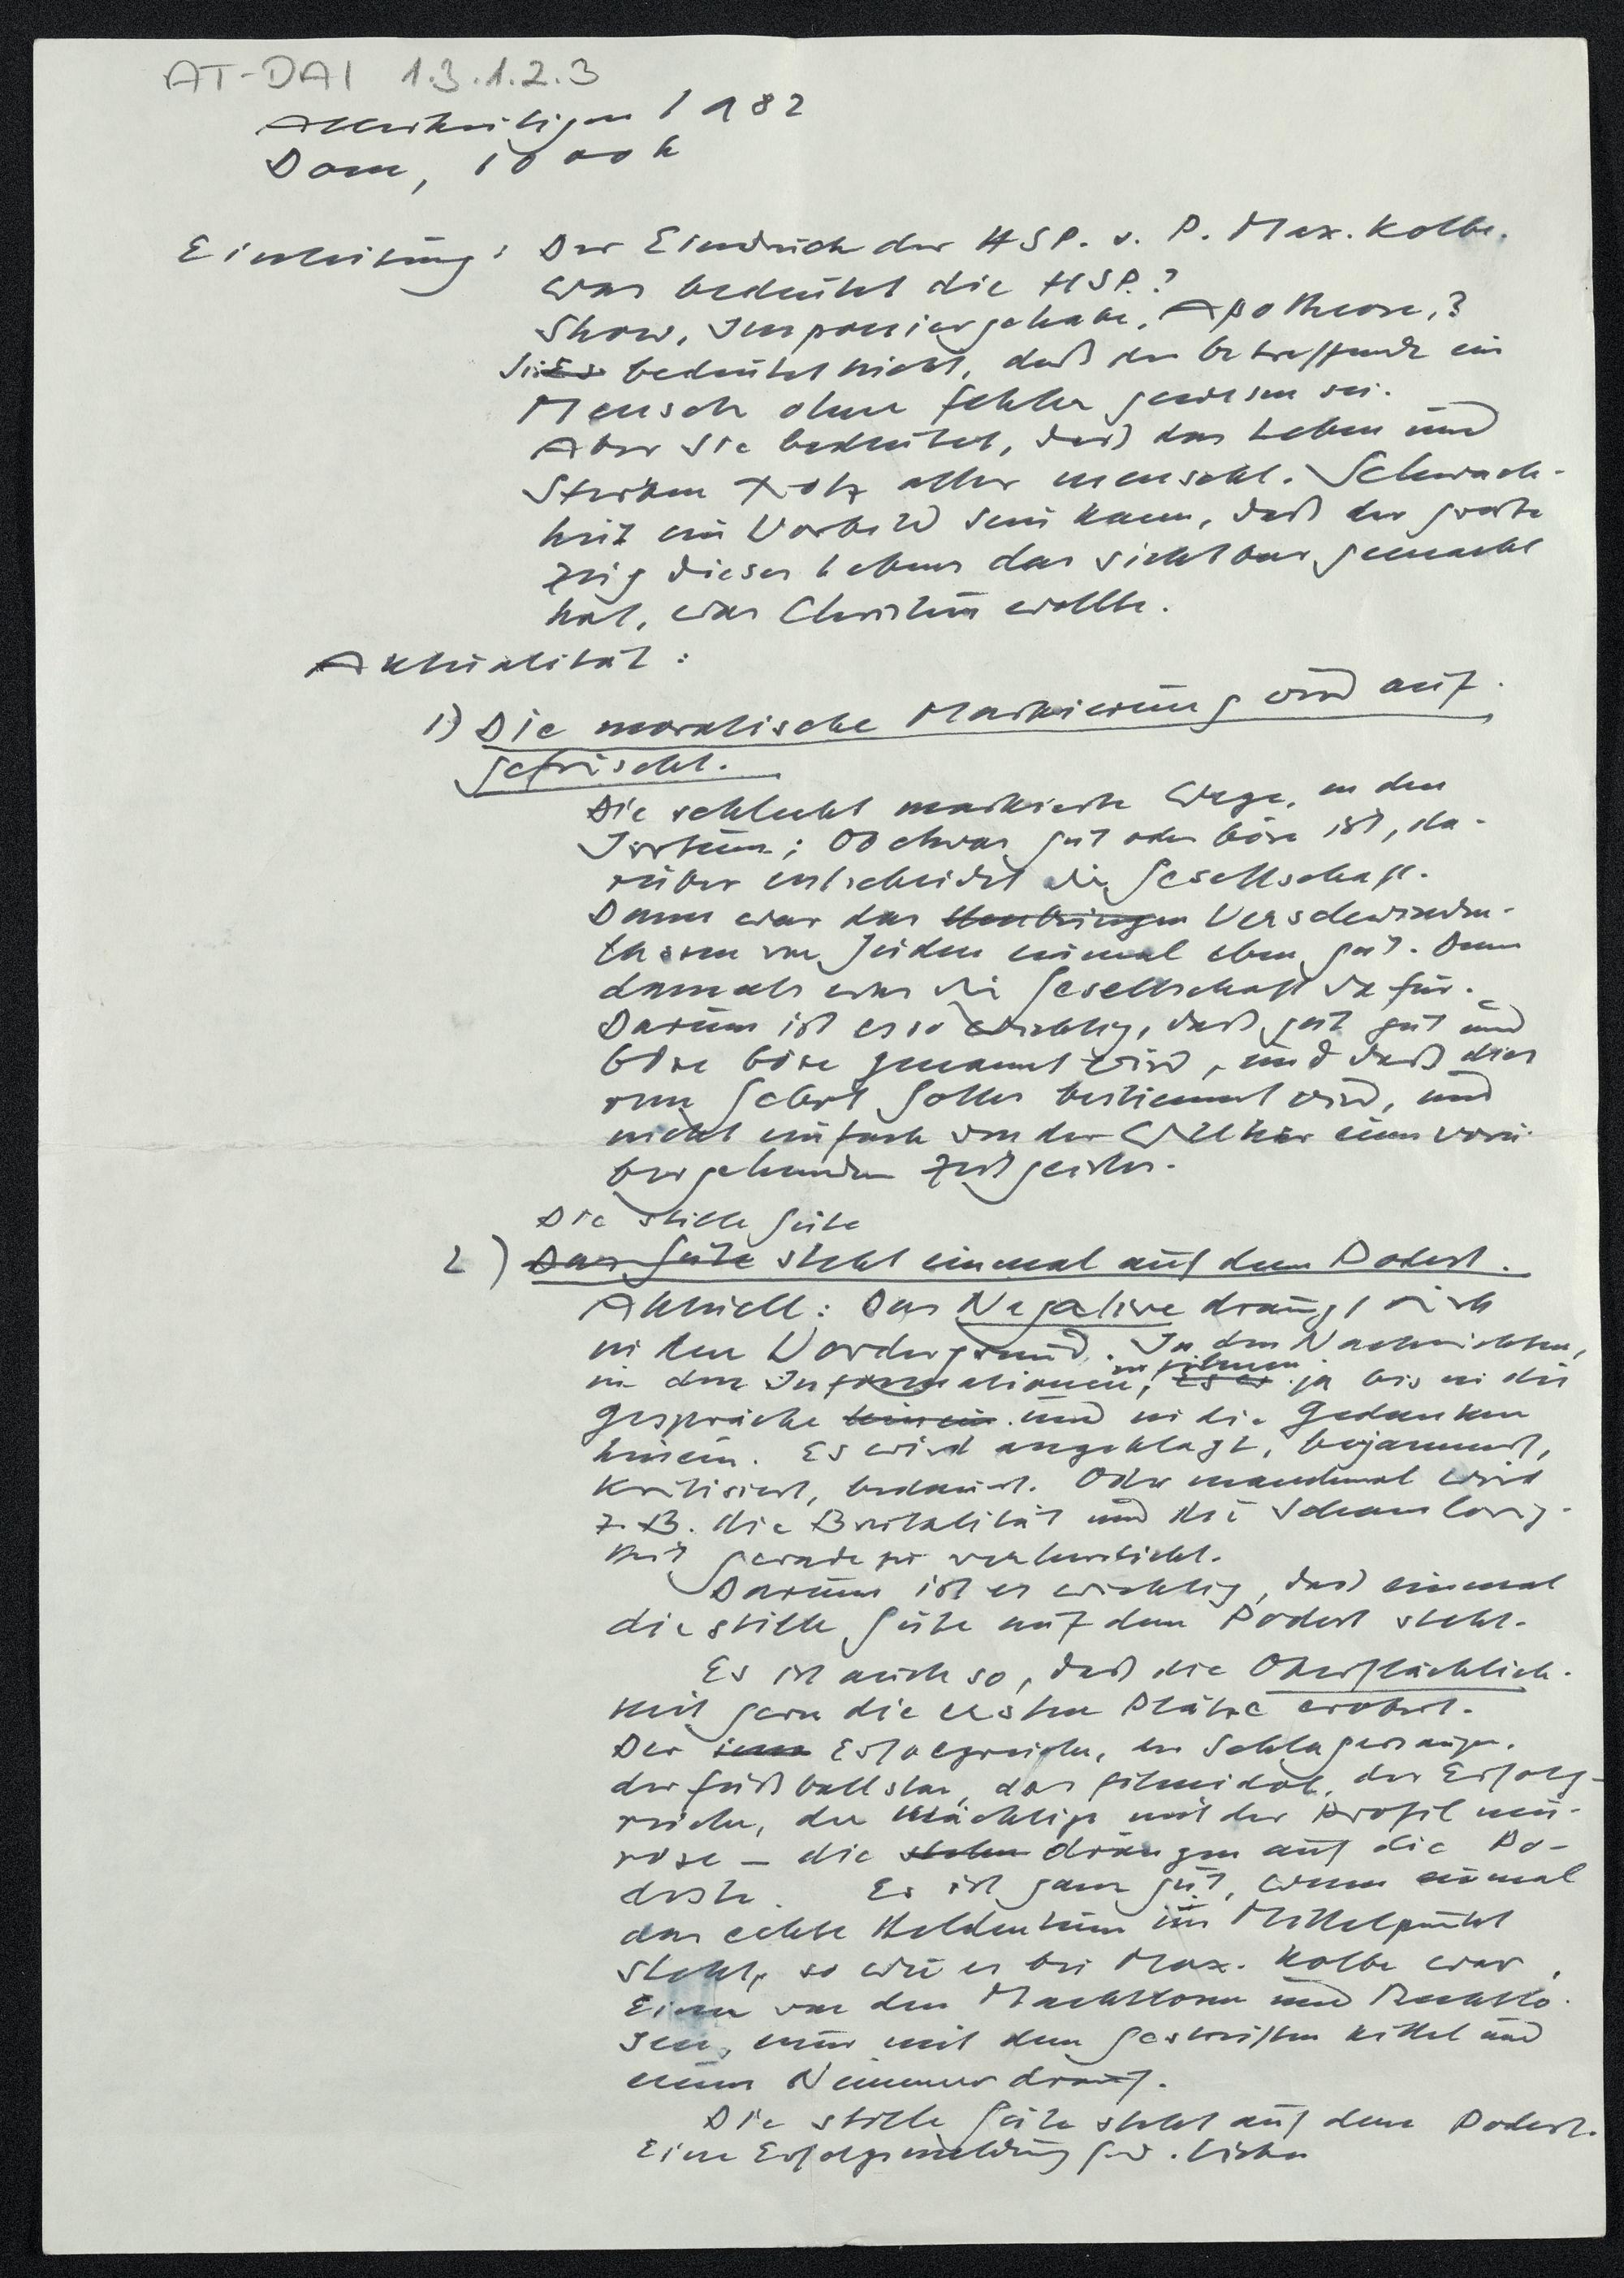 AT-DAI 1.3.1.2.3
Allerheiligen 1982
Dom, 10 00 h
Einleitung: Der Eindruck der HSP. v. P. Max. Kolbe.
Was bedeutet die HSP.?
Show, Imponiergehabe, Apotheose,?
Sie Es bedeutet nicht, daß der betreffende ein
Mensch ohne Fehler gewesen sei.
Aber sie bedeutet, daß das Leben und
Sterben trotz aller menschl. Schwach-
heit ein Vorbild sein kann, daß der große
Zug dieses Lebens das sichtbar gemacht
hat, was Christus wollte.
Aktualität:
1) Die moralische Markierung wird auf-
gefrischt.
Die schlecht markierte Wege, in den
Irrtum; Ob etwas gut oder böse ist, da-
rüber entscheidet die Gesellschaft.
Dann war das Umbringen Verschwinden-
lassen von Juden einmal eben gut. Denn
damals war die Gesellschaft dafür.
Darum ist es so wichtig, daß gut gut und
böse böse genannt wird, und daß dies
vom Gebot Gottes bestimmt wird, und
nicht einfach von der Willkür eines vorü-
bergehenden Zeitgeistes.
Die stille Güte
2) Das Gute steht einmal auf dem Podest.
Aktuell: Das Negative drängt sich
in den Vordergrund. In den Nachrichten,
in den Informationen, in Filmen ja bis in die
Gespräche hinein und in die Gedanken
hinein. Es wird angeklagt, bejammert,
kritisiert, bedauert. Oder manchmal wird
z. B. die Brutalität und die Schamlosig-
keit geradezu verherrlicht.
Darum ist es wichtig, daß einmal
die stille Güte auf dem Podest steht.
Es ist auch so, daß die Oberflächlich-
keit gern die ersten Plätze erobert.
Der Erfolgreiche, der Schlagersänger,
der Fußballstar, das Filmidol, der Erfolg-
reiche, der Mächtige mit der Profilneu-
rose – die stehen drängen auf die Po-
deste. Es ist ganz gut, wenn einmal
das echte Heldentum im Mittelpunkt
steht, so wie es bei Max. Kolbe war,
Einer von den Machtlosen und Rechtlo-
sen, nur mit dem gestreiften Kittel und
einer Nummer drauf.
Die stille Güte steht auf dem Podest.
Eine Erfolgsmeldung